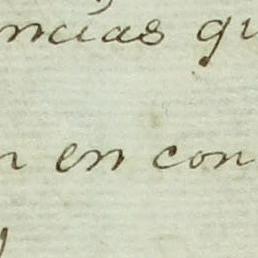 ncias qu
n en con